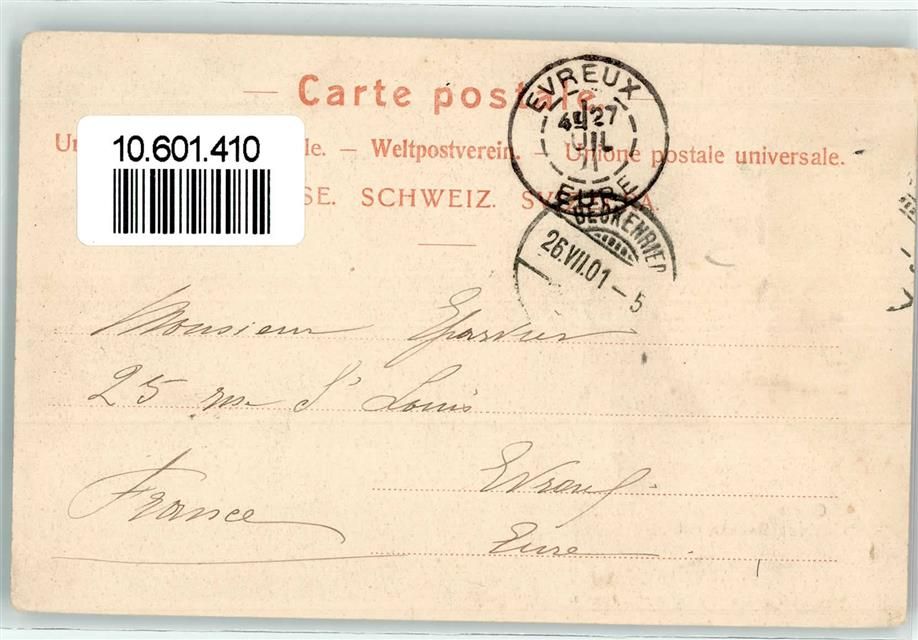 Carte postale.
10.601.410
Un le. — Weltpostverein. — Unione postale universale.
SE. SCHWEIZ. SV A.
EVREUX
4E 27
JUIL
EURE
BECKENRIED
26.VII.01–5
Monsieur
25 rue St Louis
Evreux
France
Eure